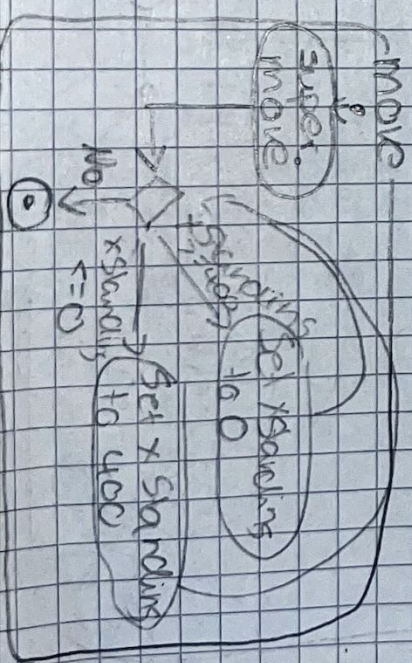 move
super.
move
Standing
Set xStanding
to 0
No
xStanding
<=0
Set x Standing
to 400